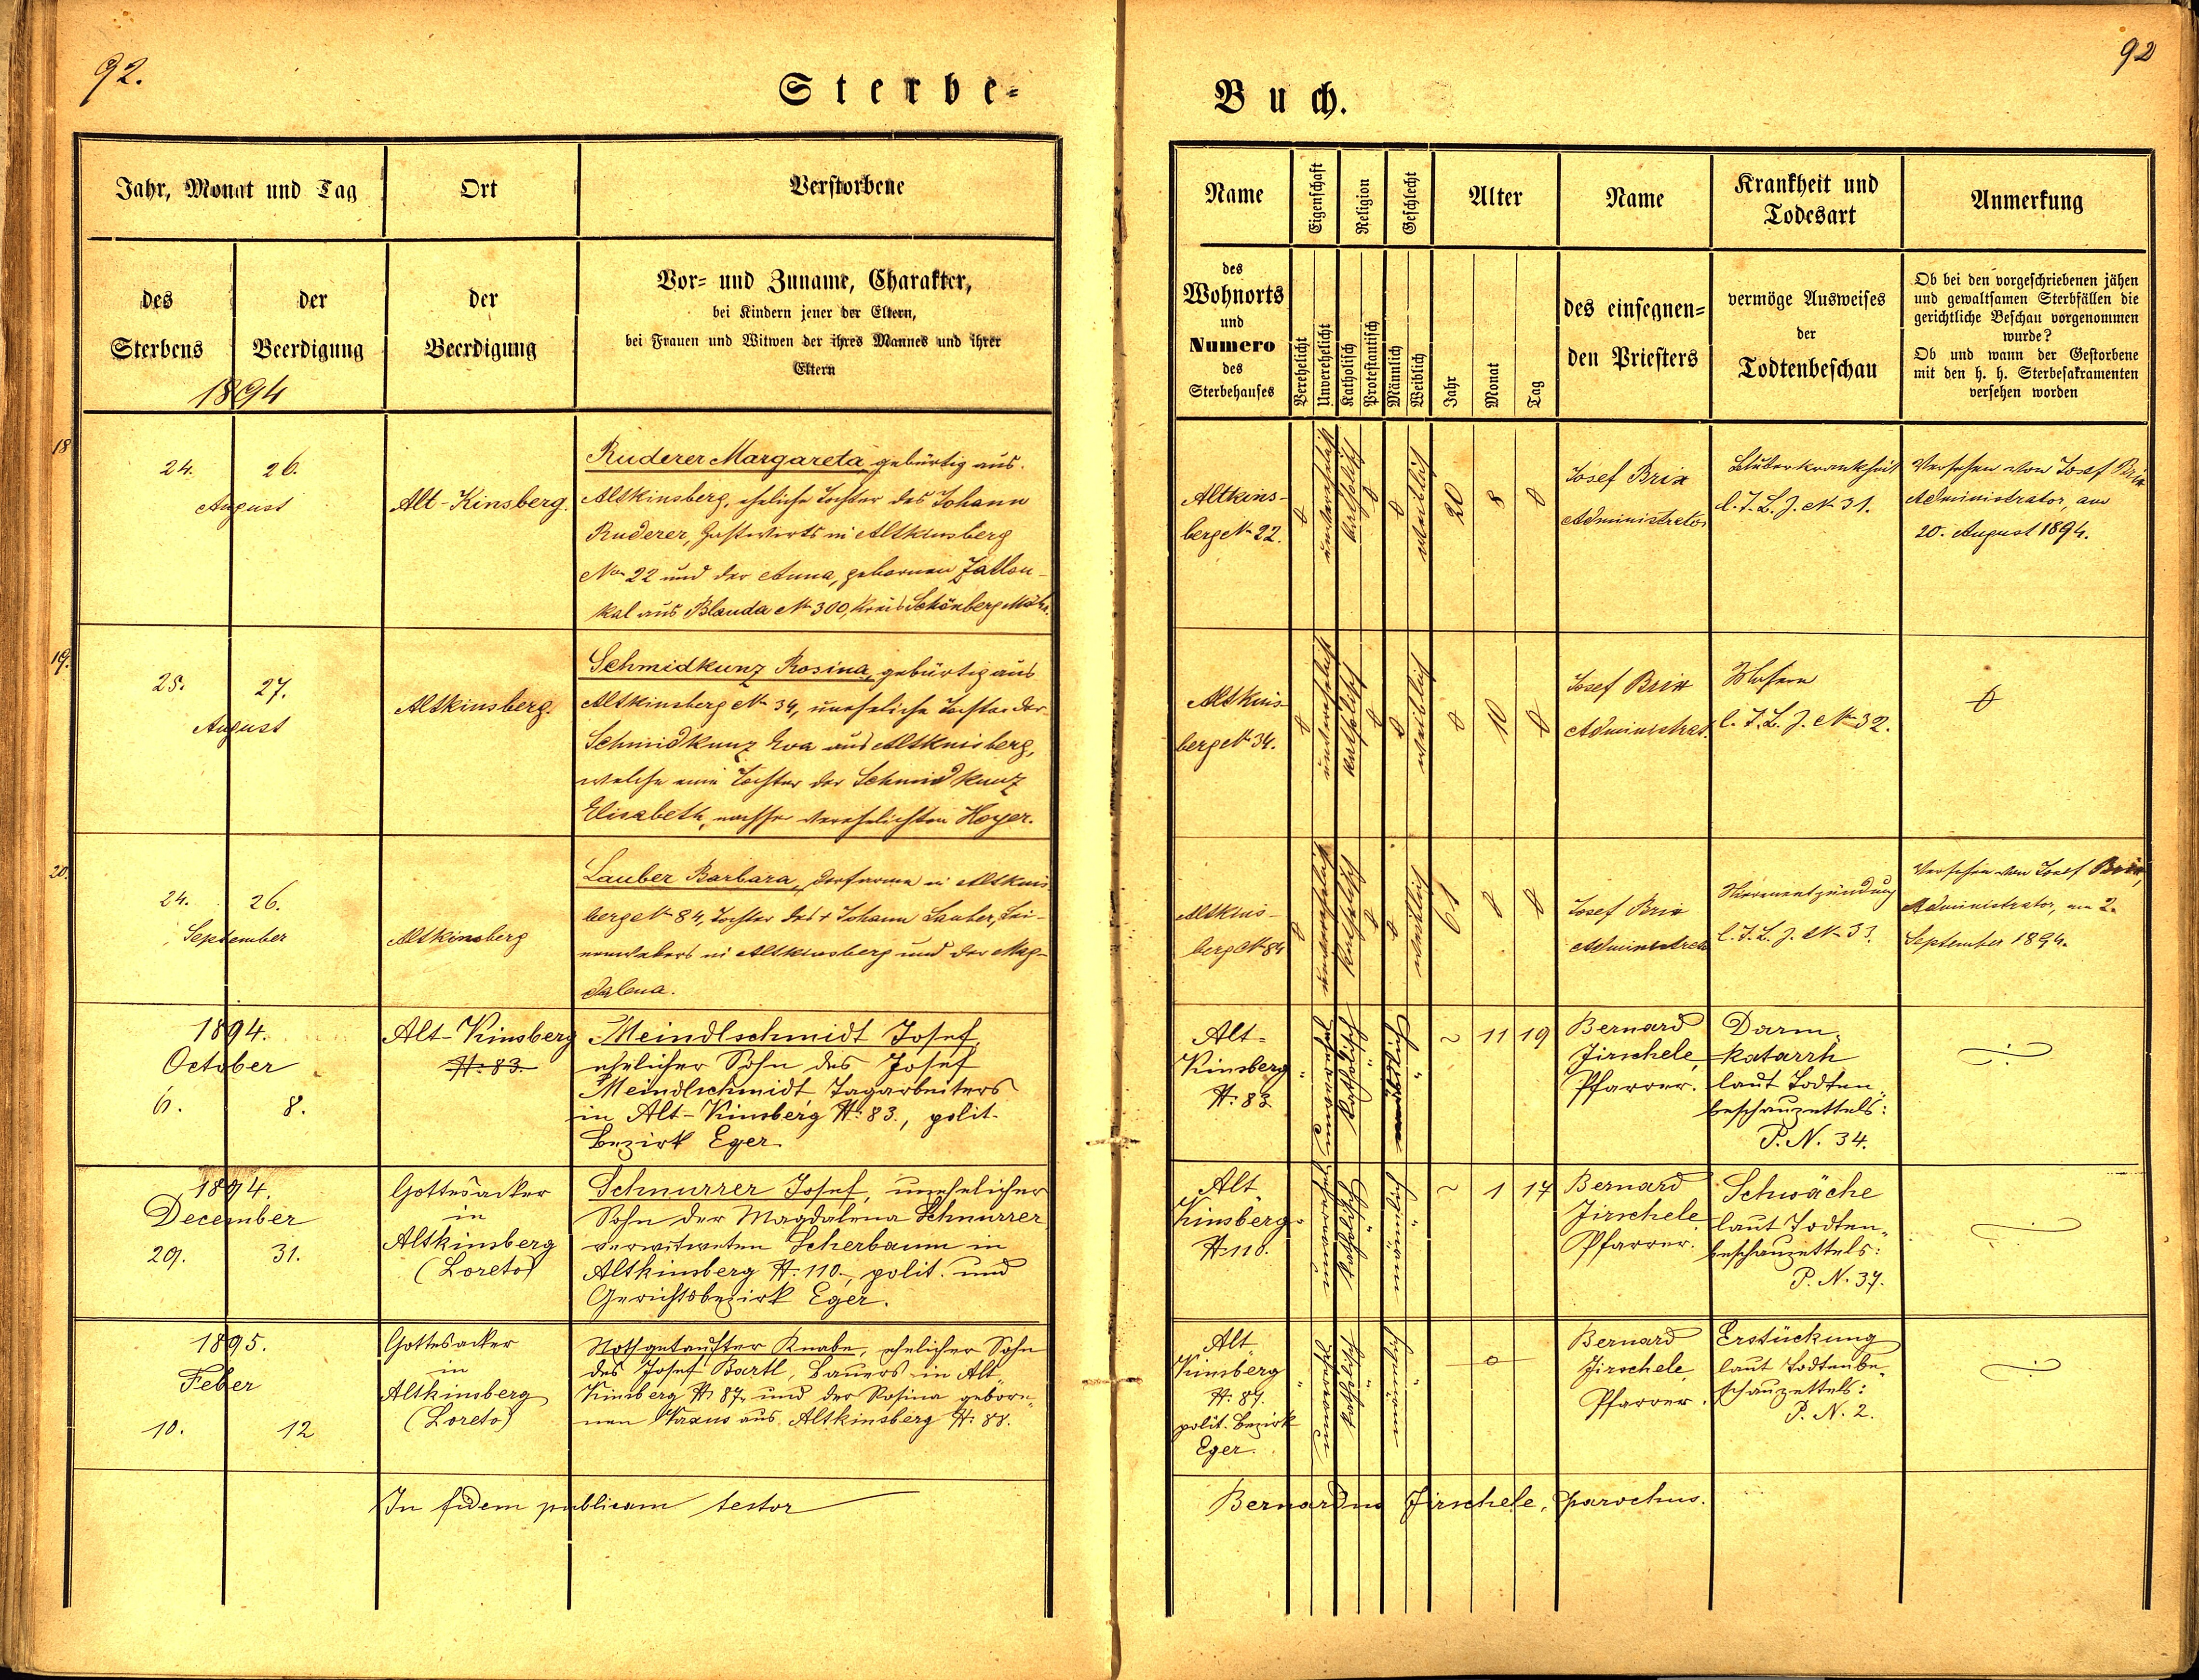 92.
Sterbe-
Jahr, Monat und Tag
Ort
Verstorbene
des
Sterbens
der
Beerdigung
der
Beerdigung
Vor- und Zuname, Charakter,
bei Kindern jener der Eltern,
bei Frauen und Witwen der ihres Mannes und ihrer
Eltern
1894
18
24.
26.
August
Alt-Kinsberg.
Ruderer Margareta, gebürtig aus
Altkinsberg, eheliche Tochter des Johann
Ruderer, Gastwirts in Altkinsberg
No 22 und der Anna, gebornen Zatlou-
kal aus Blauda No 300, Kreis Schönberg Mähr.
19.
25.
27.
August
Altkinsberg.
Schmidkunz Rosina, gebürtig aus
Altkinsberg No 34, uneheliche Tochter der
Schmidkunz Eva aus Altkinsberg,
welche eine Tochter der Schmidkunz
Elisabeth, nachher verehelichten Hoyer.
20.
24.
26.
September
Altkinsberg
Lauber Barbara, Dorfarme in Altkins-
berg No 84, Tochter des + Johann Lauber, Lei-
nenwebers in Altkinsberg und der Mag-
dalena.
1894.
October
6.
8.
Alt-Kinsberg
N: 83.
Meindlschmidt Josef,
ehelicher Sohn des Josef
Meindlschmidt Tagarbeiters
in Alt-Kinsberg N: 83., polit.
Bezirk Eger.
1894.
December
29.
31.
Gottesacker
in
Altkinsberg
(Loreto)
Schnurrer Josef, unehelicher
Sohn der Magdalena Schnurrer
verwitweten Scherbaum in
Altkinsberg N: 110., polit. und
Gerichtsbezirk Eger.
1895.
Feber
10.
12
Gottesacker
in
Altkinsberg
(Loreto)
Nothgetaufter Knabe, ehelicher Sohn
des Josef Bartl, Bauers in Alt-
Kinsberg N: 87. und der Rosina gebor-
nen aus Altkinsberg N: 88.
In fidem publicam testor
92
Buch.
Name
Eigenschaft
Religion
Geschlecht
Alter
Name
Krankheit und
Todesart
Anmerkung
des
Wohnorts
und
Numero
des
Sterbehauses
Verehelicht
Unverehelicht
Katholisch
Protestantisch
Männlich
Weiblich
Jahr
Monat
Tag
des einsegnen-
den Priesters
vermöge Ausweises
der
Todtenbeschau
Ob bei den vorgeschriebenen jähen
und gewaltsamen Sterbfällen die
gerichtliche Beschau vorgenommen
wurde?
Ob und wann der Gestorbene
mit den h. h. Sterbesakramenten
versehen worden
Altkins-
berg No 22.
0
unverehelicht
katholisch
0
0
weiblich
20
8
0
Josef Brix
Administrator
l. T. B. Z. No 31.
Versehen von Josef Brix
Administrator, am
20. August 1894.
Altkins-
berg No 34.
0
unverehelicht
katholisch
0
0
weiblich
0
10
0
Josef Brix
Administrat.
l. T. B. Z. No 32.
0
Altkins-
berg No 84
0
unverehelicht
katholisch
0
0
weiblich
61
0
0
Josef Brix
Administrator
Nierenentzündung
l. T. B. Z. No 33.
Versehen von Josef Brix,
Administrator, am 2.
September 1894.
Alt-
Kinsberg
N: 83
"
katholisch
"
"
~
11
19
Bernard
Jirschele,
Pfarrer.
Darm-
katarrh
laut Todten-
beschauzettels:
P. N. 34.
Alt-
Kinsberg
N: 110.
"
katholisch
"
"
~
1
17
Bernard
Jirschele,
Pfarrer.
Schwäche
laut Todten-
beschauzettels:
P. N. 37.
Alt-
Kinsberg
N: 87.
polit. Bezirk
Eger.
"
katholisch
"
"
0
Bernard
Jirschele,
Pfarrer.
Erstückung
laut Todtenbe-
schauzettels:
P. N. 2.
Bernardus Jirschele, parochus.